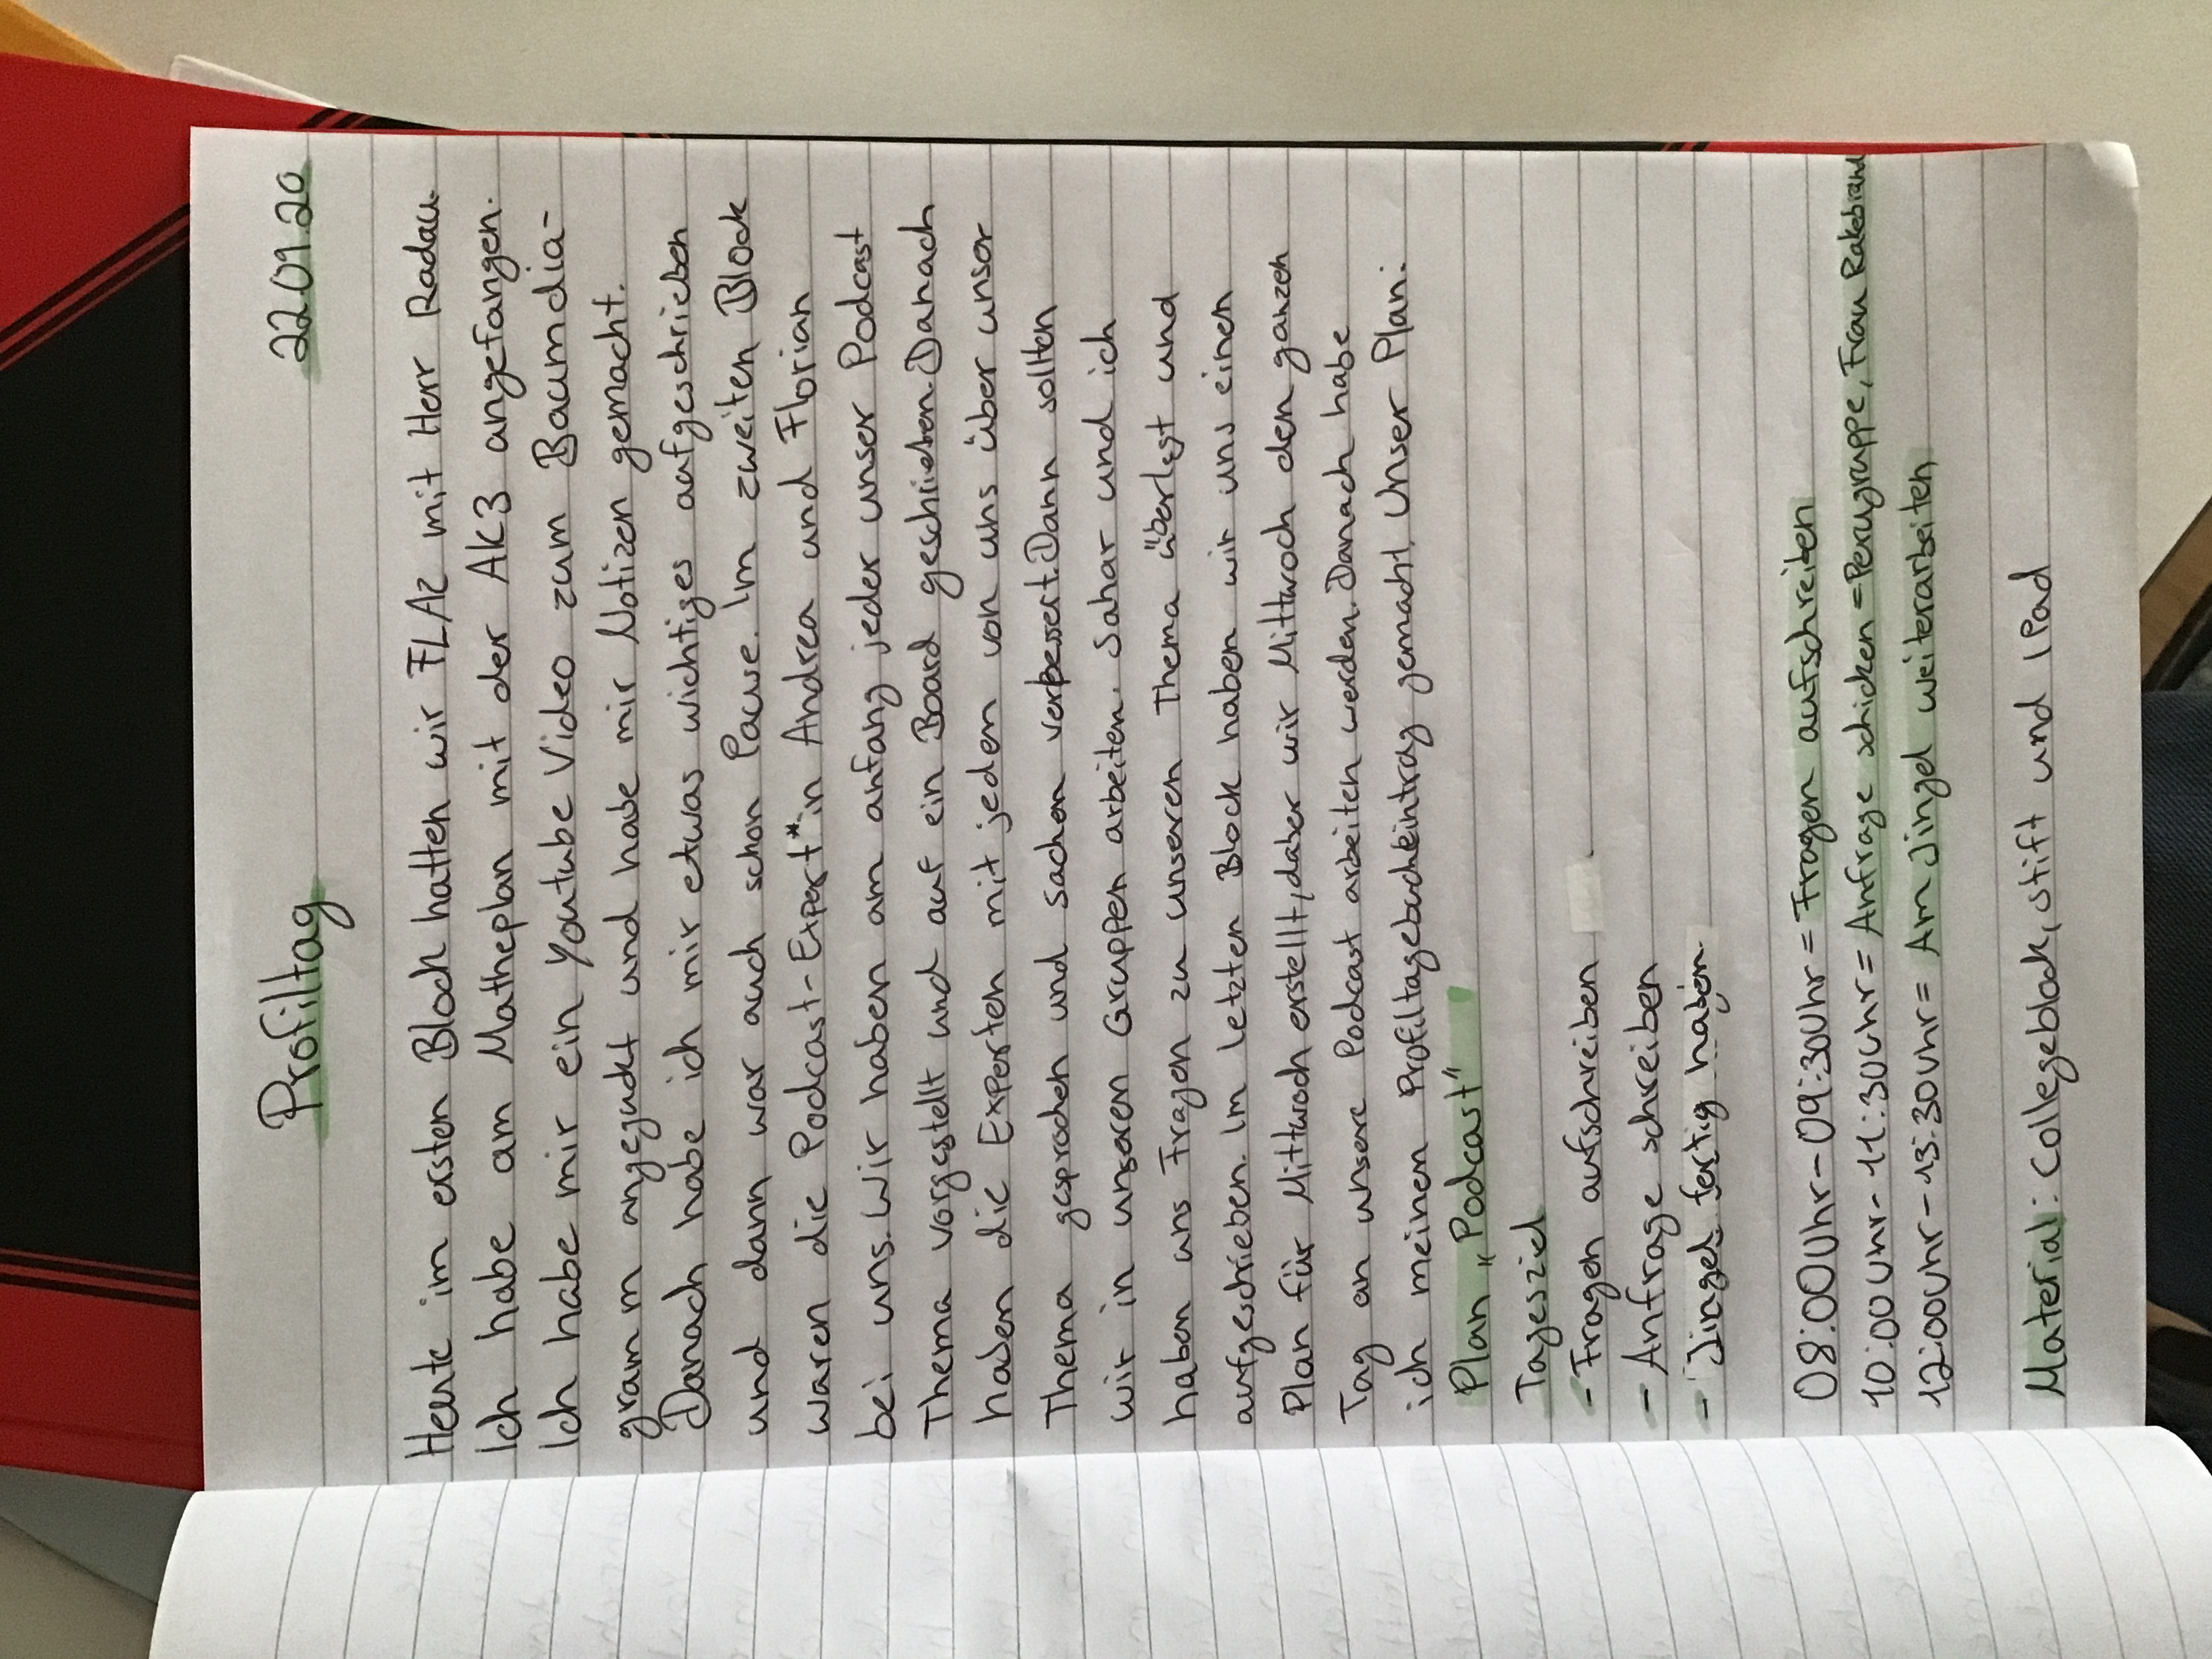 Profiltag 22.09.20
Heute im ersten Block hatten wir FLAZ mit Herr Radau.
Ich habe am Matheplan mit der AK3 angefangen.
Ich habe mir ein Youtube Video zum Baumdia-
gramm angegukt und habe mir Notizen gemacht.
Danach habe ich mir etwas wichtiges aufgeschrieben
und dann war auch schon Pause. Im zweiten Block
waren die Podcast-Expert*in Andrea und Florian
bei uns. Wir haben am anfang jeder unser Podcast
Thema vorgestellt und auf ein Board geschrieben. Danach
haben die Experten mit jedem von uns über unser
Thema gesprochen und sachen verbessert. Dann sollten
wir in unseren Gruppen arbeiten. Sahar und ich
haben uns Fragen zu unseren Thema überlegt und
aufgeschrieben. Im letzten Block haben wir uns einen
Plan für Mittwoch erstellt, daher wir Mittwoch den ganzen
Tag an unsere Podcast arbeiten werden. Danach habe
ich meinen Profiltagebucheintrag gemacht. Unser Plan:
Plan „Podcast"
Tagesziel
- Fragen aufschreiben
- Anfrage schreiben
- Jingel fertig haben
08:00Uhr-09:30Uhr = Fragen aufschreiben
10:00Uhr-11:30Uhr = Anfrage schicken = Perugruppe, Frau Rakebrand
12:00Uhr-13:30Uhr = Am Jingel weiterarbeiten
Material: Collegeblock, stift und IPad